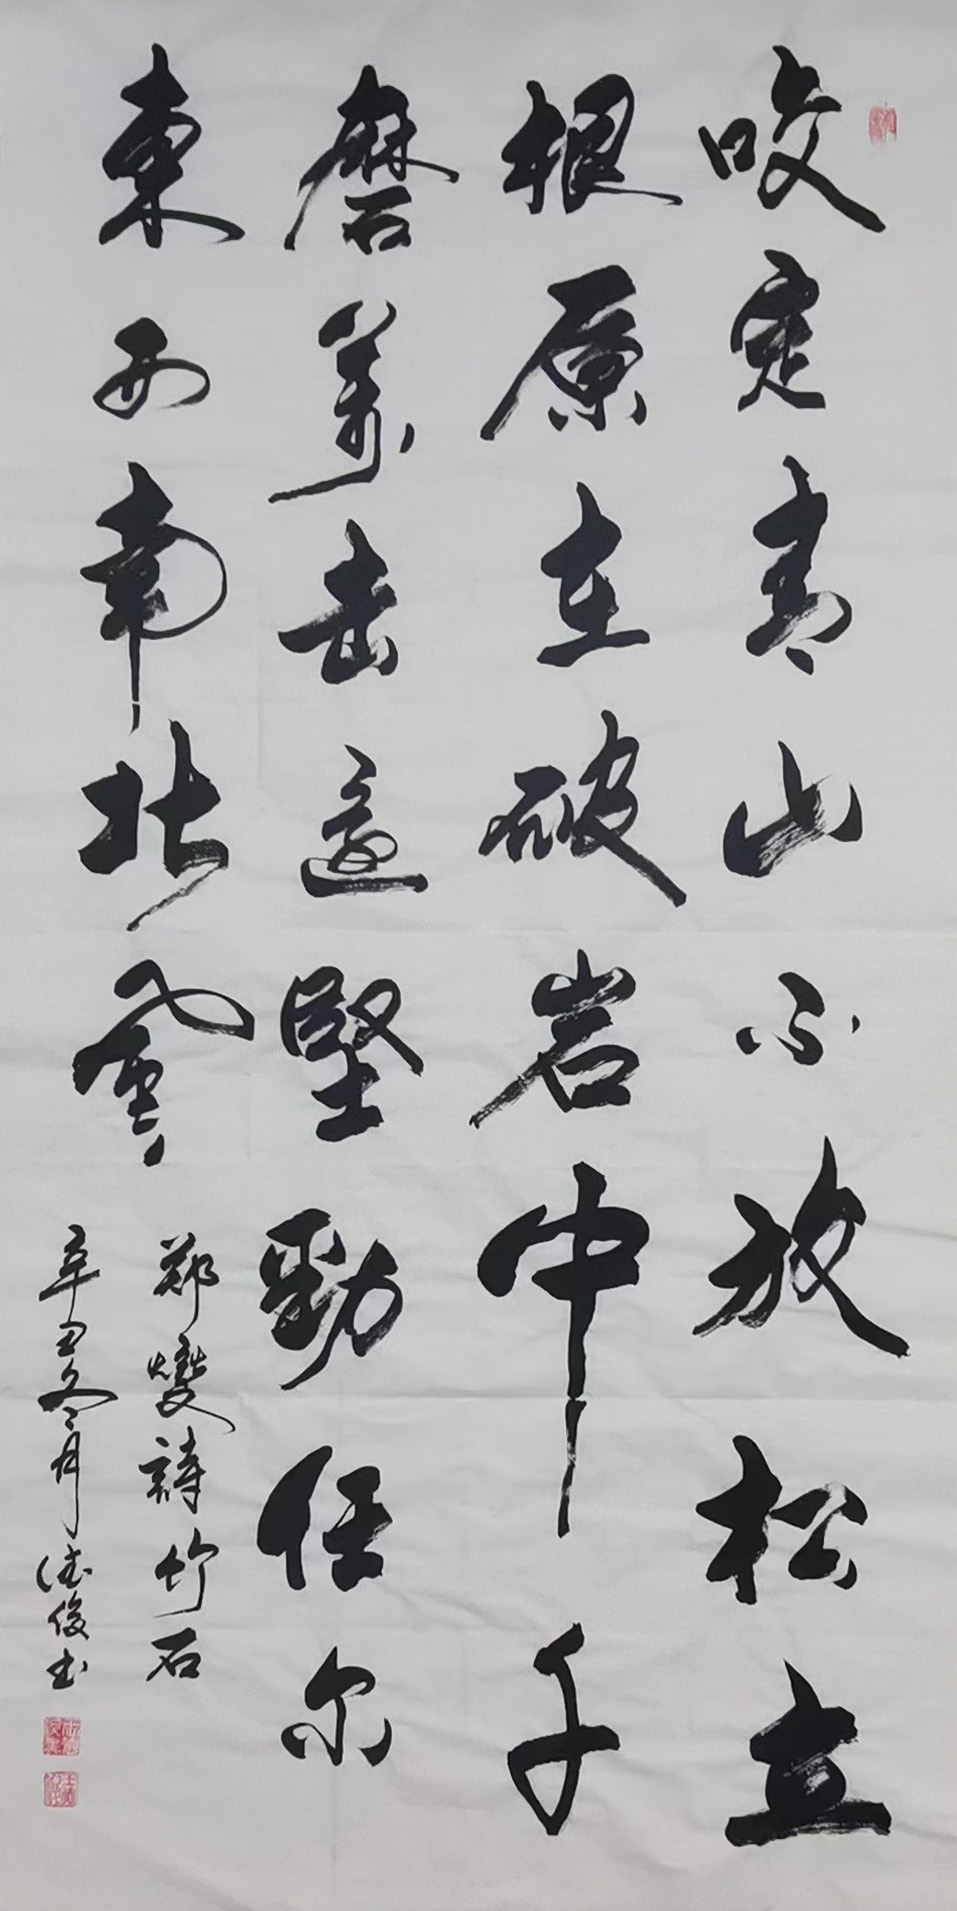 咬定青山不放松立
根原在破岩中千
磨万击还坚劲任尔
东西南北风
郑燮诗竹石
辛丑冬月德俊书